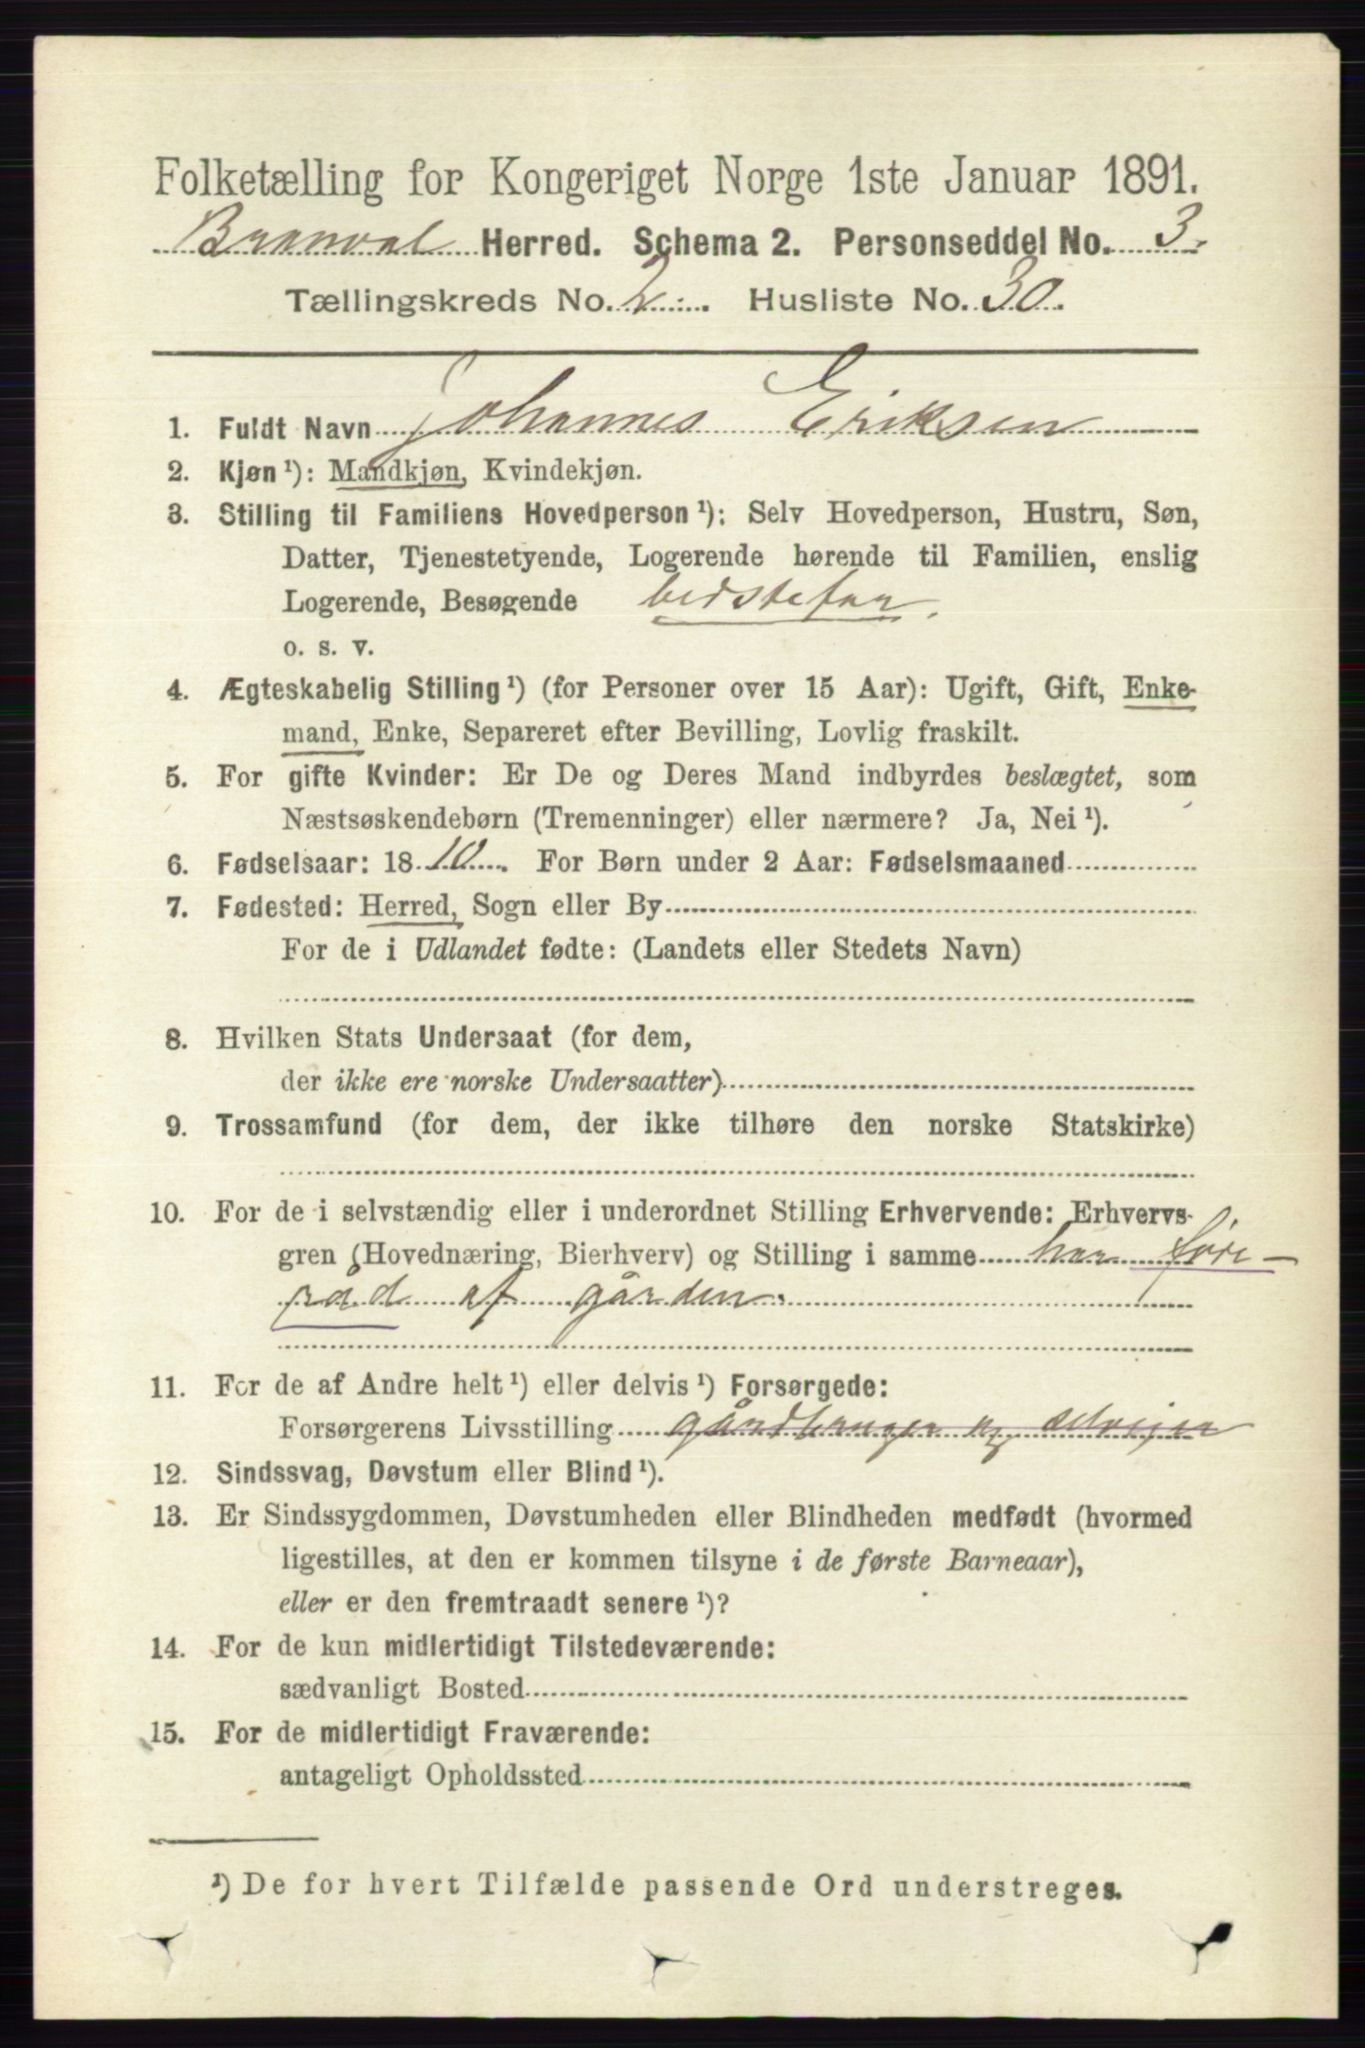 Folketælling for Kongeriget Norge 1ste Januar 1891.
Branval Herred. Schema 2. Personseddel No. 3.
Tællingskreds No. 2. Husliste No. 30.
1. Fuldt Navn Johannes Eriksen
2. Kjøn ¹): Mandkjøn, Kvindekjøn.
3. Stilling til Familiens Hovedperson ¹): Selv Hovedperson, Hustru, Søn,
Datter, Tjenestetyende, Logerende hørende til Familien, enslig
Logerende, Besøgende bedstefar.
o. s. v.
4. Ægteskabelig Stilling ¹) (for Personer over 15 Aar): Ugift, Gift, Enke-
mand, Enke, Separeret efter Bevilling, Lovlig fraskilt.
5. For gifte Kvinder: Er De og Deres Mand indbyrdes beslægtet, som
Næstsøskendebørn (Tremenninger) eller nærmere? Ja, Nei ¹).
6. Fødselsaar: 1810. For Børn under 2 Aar: Fødselsmaaned
7. Fødested: Herred, Sogn eller By
For de i Udlandet fødte: (Landets eller Stedets Navn)
8. Hvilken Stats Undersaat (for dem,
der ikke ere norske Undersaatter)
9. Trossamfund (for dem, der ikke tilhøre den norske Statskirke)
10. For de i selvstændig eller i underordnet Stilling Erhvervende: Erhvervs-
gren (Hovednæring, Bierhverv) og Stilling i samme har före-
råd af gården.
11. For de af Andre helt ¹) eller delvis ¹) Forsørgede:
Forsørgerens Livsstilling gårdbruger og selveier
12. Sindssvag, Døvstum eller Blind ¹).
13. Er Sindssygdommen, Døvstumheden eller Blindheden medfødt (hvormed
ligestilles, at den er kommen tilsyne i de første Barneaar),
eller er den fremtraadt senere ¹)?
14. For de kun midlertidigt Tilstedeværende:
sædvanligt Bosted
15. For de midlertidigt Fraværende:
antageligt Opholdssted
¹) De for hvert Tilfælde passende Ord understreges.